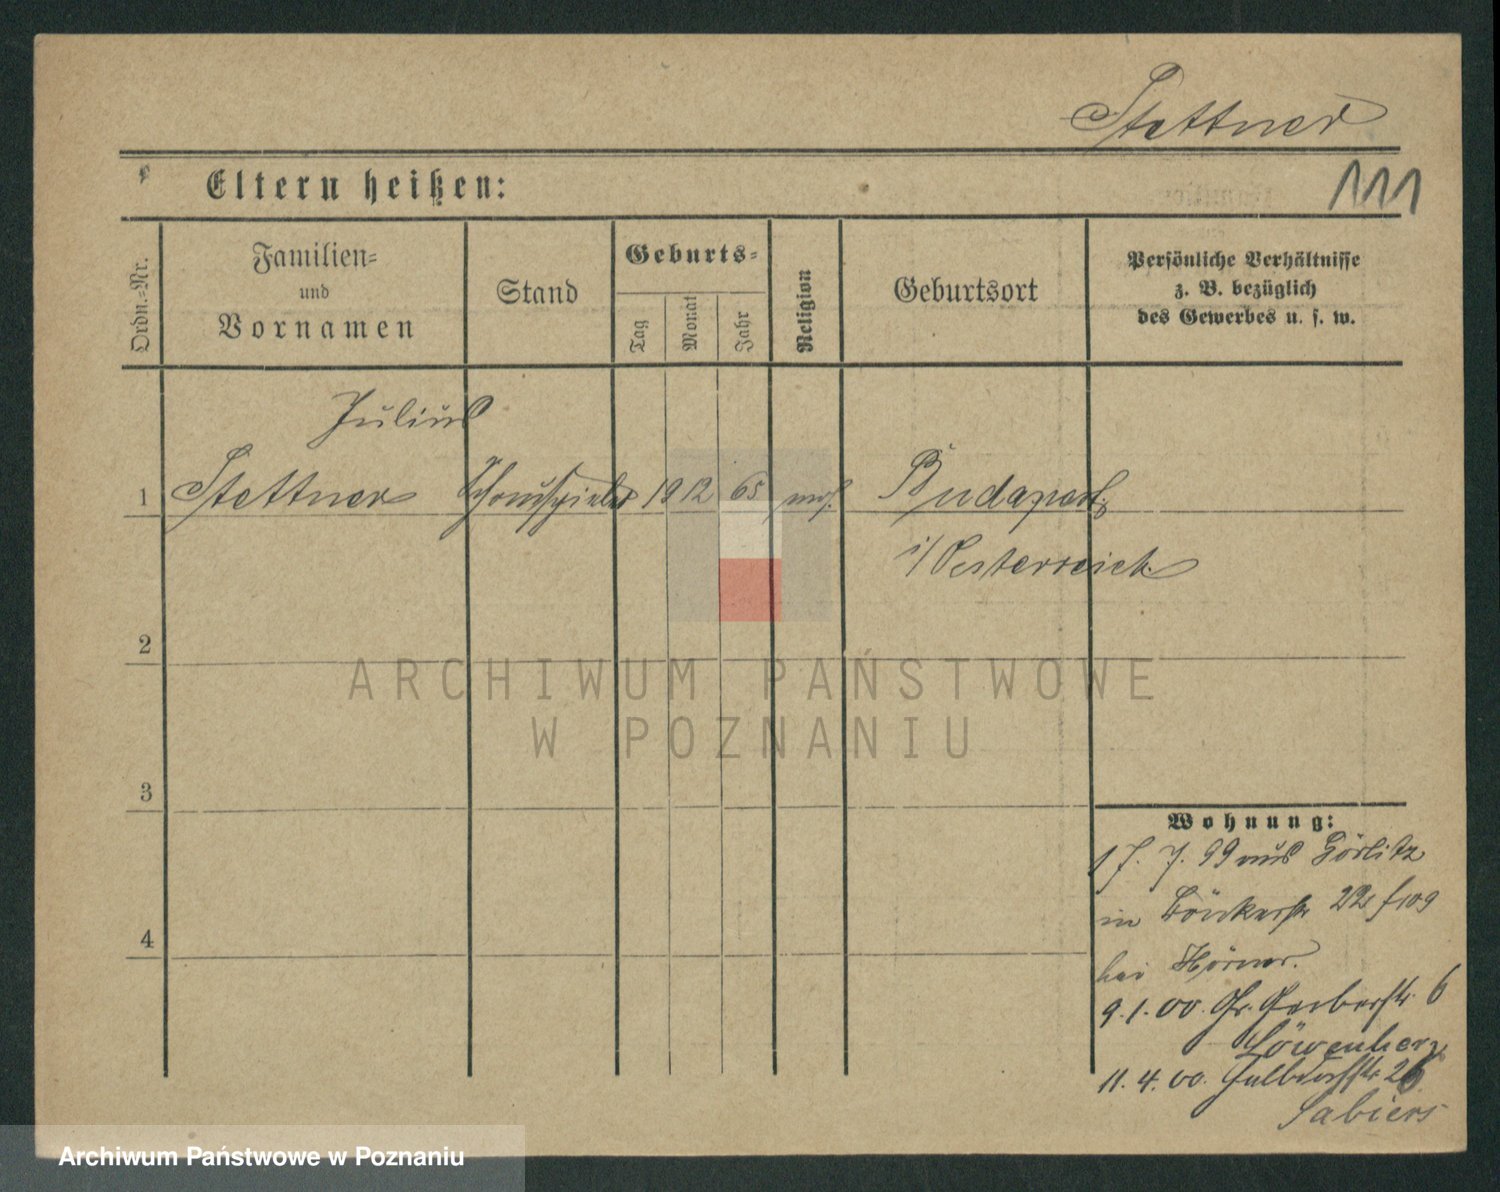 Stettner
111
Eltern heißen:
Ordn.-Nr.
Familien-
und
Vornamen
Stand
Geburts-
Tag
Monat
Jahr
Religion
Geburtsort
Persönliche Verhältnisse
z. B. bezüglich
des Gewerbes u. s. w.
Julius
1 Stettner Schauspieler 19 12 65 mos. Budapest
i/Oesterreich
2
3
4
Wohnung:
17. 7. 99 aus Görlitz
in 22
bei Hörner.
9.1.00. Gr. Gerberstr. 6
Löwenherz
11.4.00. Halbdorfstr. 26
ARCHIWUM PAŃSTWOWE
W POZNANIU
Archiwum Państwowe w Poznaniu